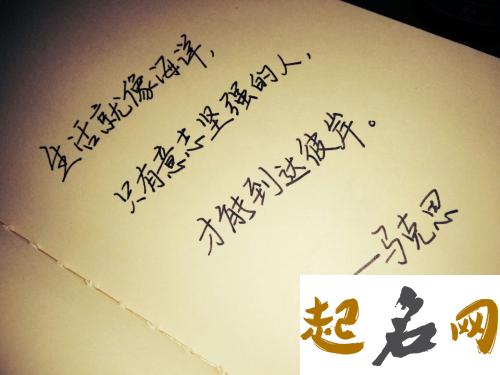 生活就像海洋，
只有意志坚强的人，
才能到达彼岸。
——马克思
起名网